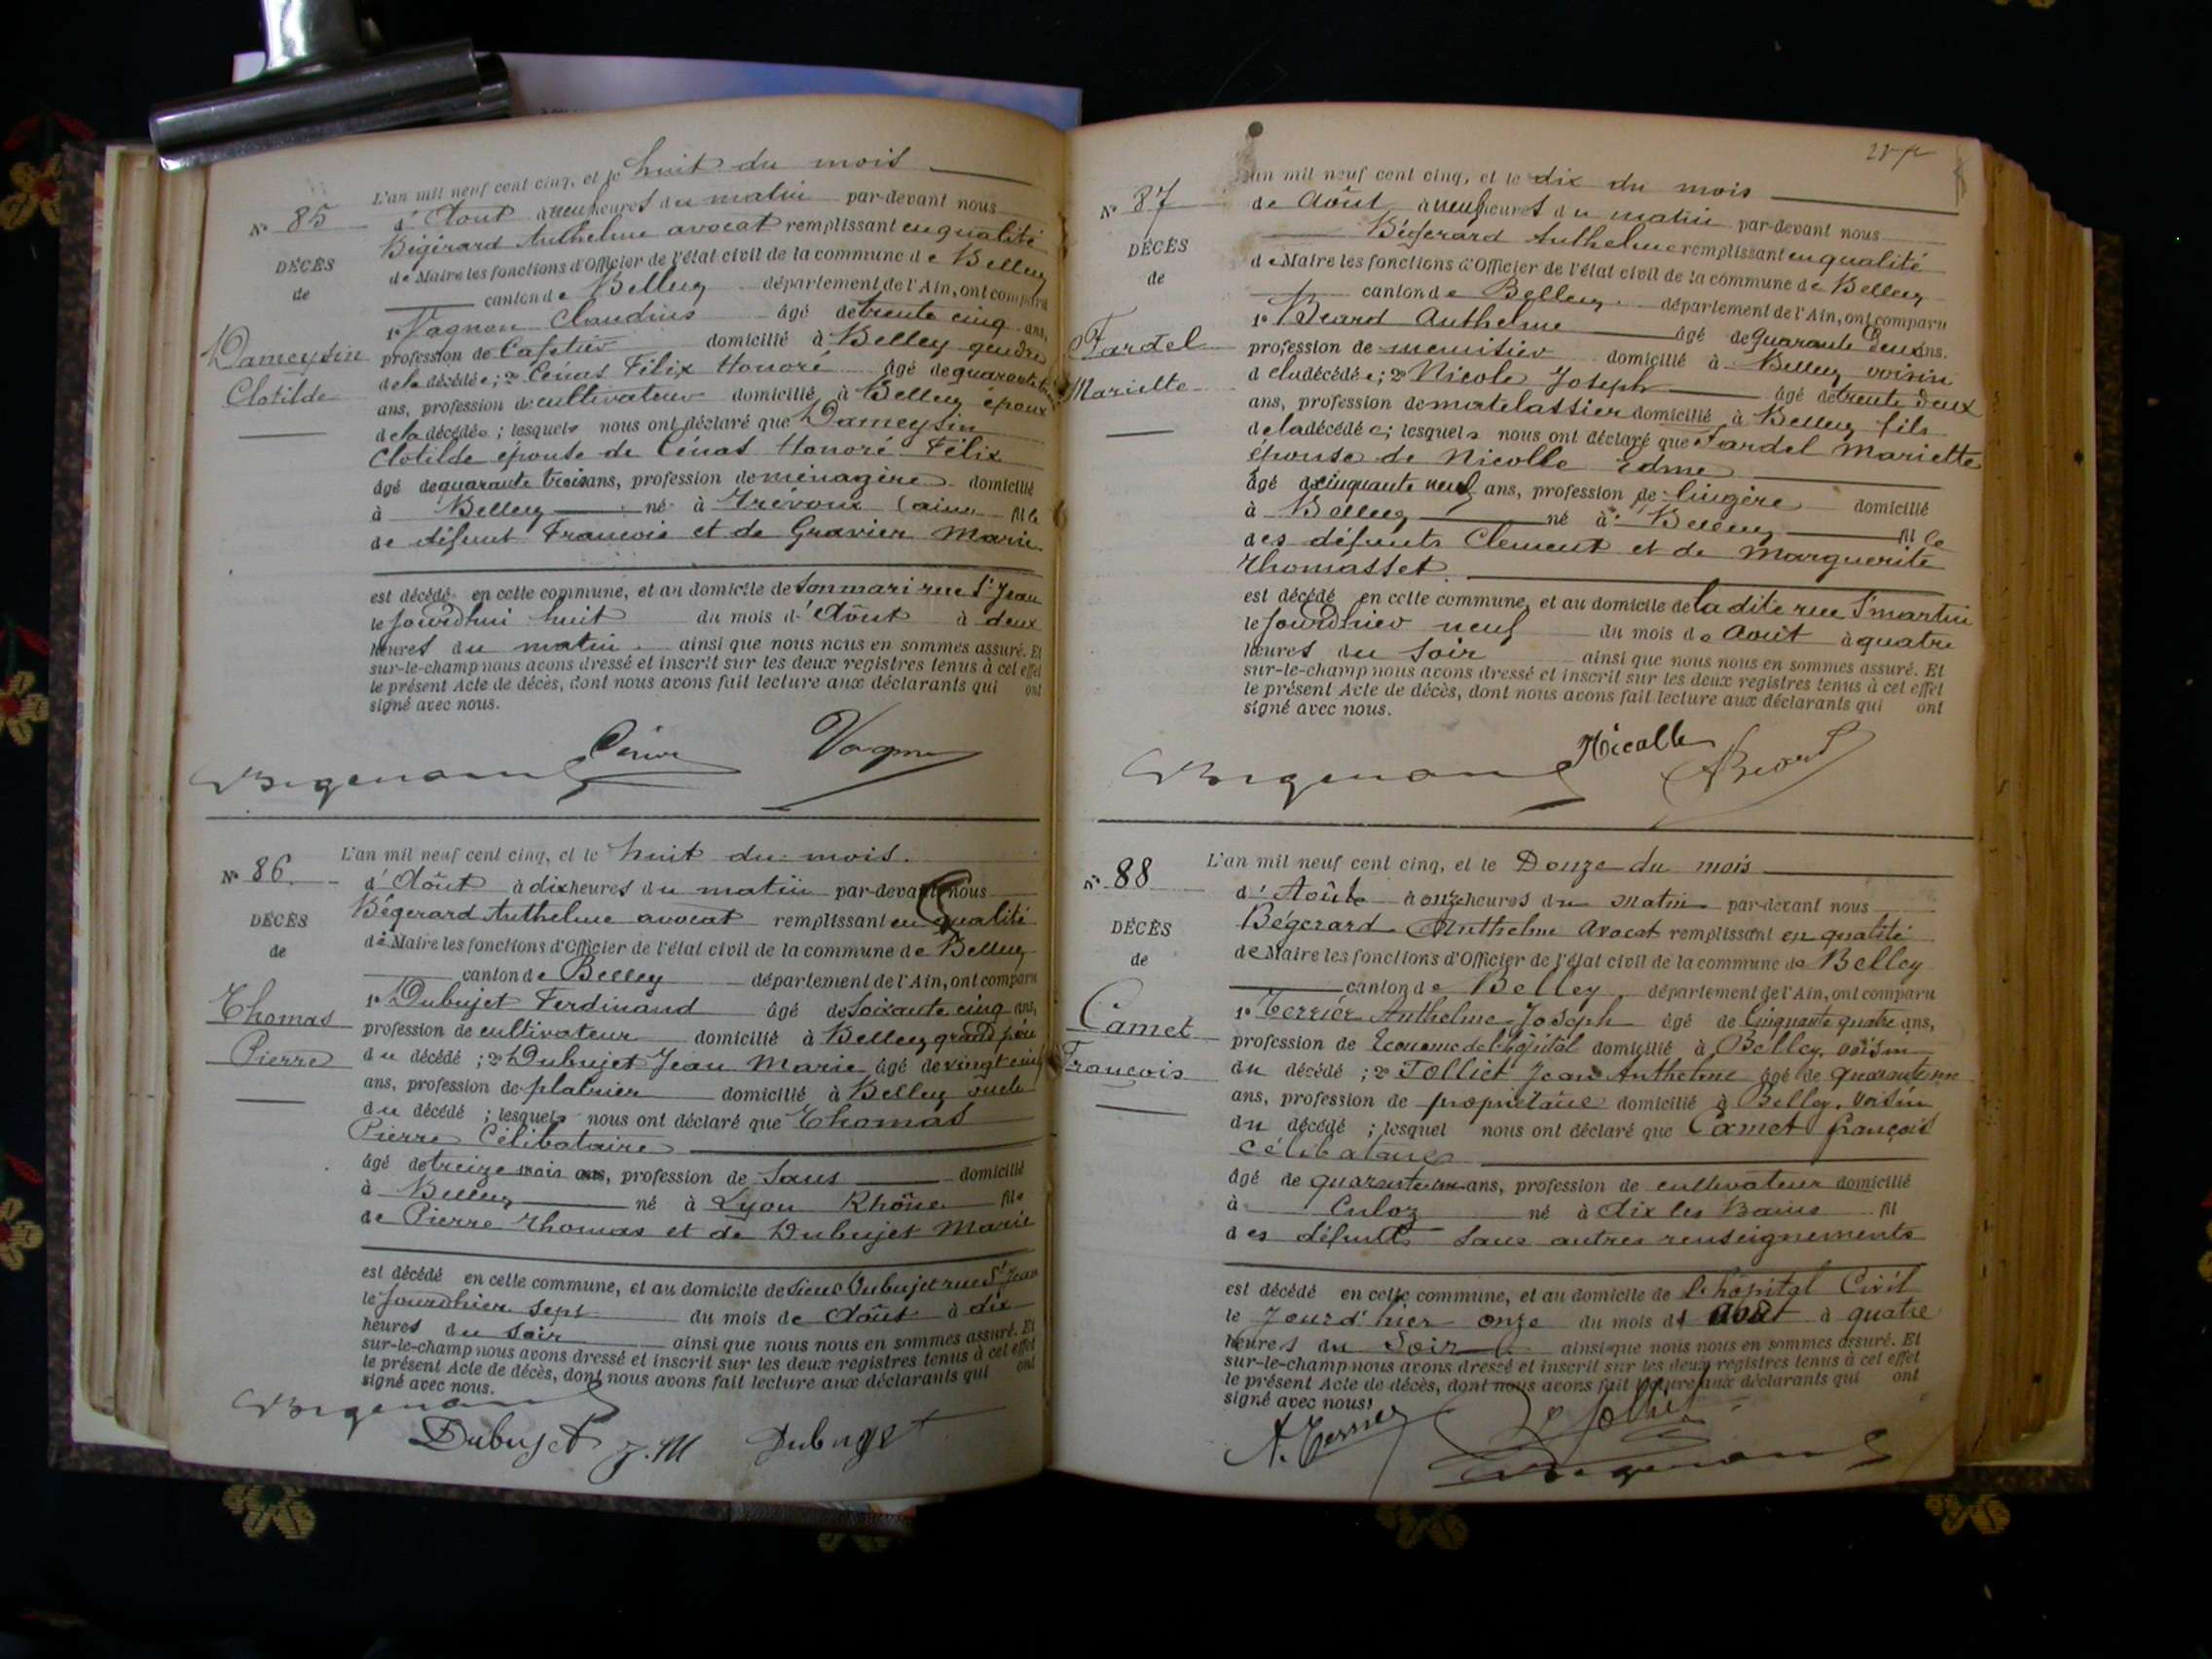 L'an mil neuf cent cinq, et le huit du mois
N° 85
d'Août à neuf heures du matin par-devant nous
Bégérard Anthelme avocat remplissant en qualité
DÉCÈS
de Maire les fonctions d'Officier de l'état civil de la commune de Belley
de
canton de Belley département de l'Ain, ont comparu
1° Vagnon Claudius âgé de trente cinq ans,
Dameysin
profession de Cafetier domicilié à Belley gendre
de la décédée; 2° Cénas Félix Honoré âgé de quarante
Clotilde
ans, profession de cultivateur domicilié à Belley époux
de la décédée; lesquels nous ont déclaré que Dameysin
Clotilde épouse de Cénas Honoré Félix
âgé de quarante trois ans, profession de ménagère domicilié
à Belley né à Trévoux (ain fille
de défunt Francois et de Gravier Marie
est décédé en cette commune, et au domicile de son mari rue St Jean
le jourdhui huit du mois d'Août à deux
heures du matin ainsi que nous nous en sommes assuré. Et
sur-le-champ nous avons dressé et inscrit sur les deux registres tenus à cet effet
le présent Acte de décès, dont nous avons fait lecture aux déclarants qui ont
signé avec nous.
N° 86
L'an mil neuf cent cinq, et le huit du mois.
d'Août à dix heures du matin par-devant nous
Bégerard Anthelme avocat remplissant en qualité
DÉCÈS
de Maire les fonctions d'Officier de l'état civil de la commune de Belley
de
canton de Belley département de l'Ain, ont comparu
1° Dubujet Ferdinand âgé de Soixante cinq ans,
Thomas
profession de cultivateur domicilié à Belley grand père
Pierre
du décédé; 2° Dubujet Jean Marie âgé de vingt cinq
ans, profession de platrier domicilié à Belley oncle
du décédé; lesquels nous ont déclaré que Thomas
Pierre Célibataire
âgé de treize mois ans, profession de Sans domicilié
à Belley né à Lyon Rhône fils
de Pierre Thomas et de Dubujet Marie
est décédé en cette commune, et au domicile de sieur Dubujet rue St Jean
le jourdhier sept du mois de Août à dix
heures du soir ainsi que nous nous en sommes assuré. Et
sur-le-champ nous avons dressé et inscrit sur les deux registres tenus à cet effet
le présent Acte de décès, dont nous avons fait lecture aux déclarants qui ont
signé avec nous.
Dubujet J. M Dubujet
L'an mil neuf cent cinq, et le dix du mois
N° 87
de Août à neuf heures du matin par-devant nous
Bégerard Anthelme remplissant en qualité
DÉCÈS
de Maire les fonctions d'Officier de l'état civil de la commune de Belley
de
canton de Belley département de l'Ain, ont comparu
1° Béard Anthelme âgé de quarante Deux ans.
Fardel
profession de menuisier domicilié à Belley voisin
Mariette
de la décédée; 2° Nicole Joseph âgé de trente deux
ans, profession de matelassier domicilié à Belley fils
de la décédée; lesquels nous ont déclaré que Fardel Mariette
épouse de Nicolle Edme
âgé de cinquante neuf ans, profession de lingère domicilié
à Belley né à Belley fille
des défunts Clement et de Marguerite
Thomasset
est décédé en cette commune, et au domicile de ladite rue St martin
le jourdhier neuf du mois de Août à quatre
heures du soir ainsi que nous nous en sommes assuré. Et
sur-le-champ nous avons dressé et inscrit sur les deux registres tenus à cet effet
le présent Acte de décès, dont nous avons fait lecture aux déclarants qui ont
signé avec nous.
Nicolle Béard
N° 88
L'an mil neuf cent cinq, et le Douze du mois
d'Août à onze heures du matin par-devant nous
Bégerard Anthelme Avocat remplissant en qualité
DÉCÈS
de Maire les fonctions d'Officier de l'état civil de la commune de Belley
de
canton de Belley, département de l'Ain, ont comparu
1° Terrier Anthelme Joseph âgé de Cinquante quatre ans,
Camet
profession de Econome de l'hôpital domicilié à Belley, voisin
François
du décédé; 2° Tolliet Jean Anthelme âgé de quarante un
ans, profession de propriétaire domicilié à Belley, voisin
du décédé; lesquel nous ont déclaré que Camet françois
Célibataire
âgé de quarante un ans, profession de cultivateur domicilié
à Culoz né à Aix les Bains fil
des défunts Sans autres renseignements
est décédé en cette commune, et au domicile de l'hôpital Civil
le Jourd'hier onze du mois d' Août à quatre
heures du Soir ainsi que nous nous en sommes assuré. Et
sur-le-champ nous avons dressé et inscrit sur les deux registres tenus à cet effet
le présent Acte de décès, dont nous avons fait lecture aux déclarants qui ont
signé avec nous.